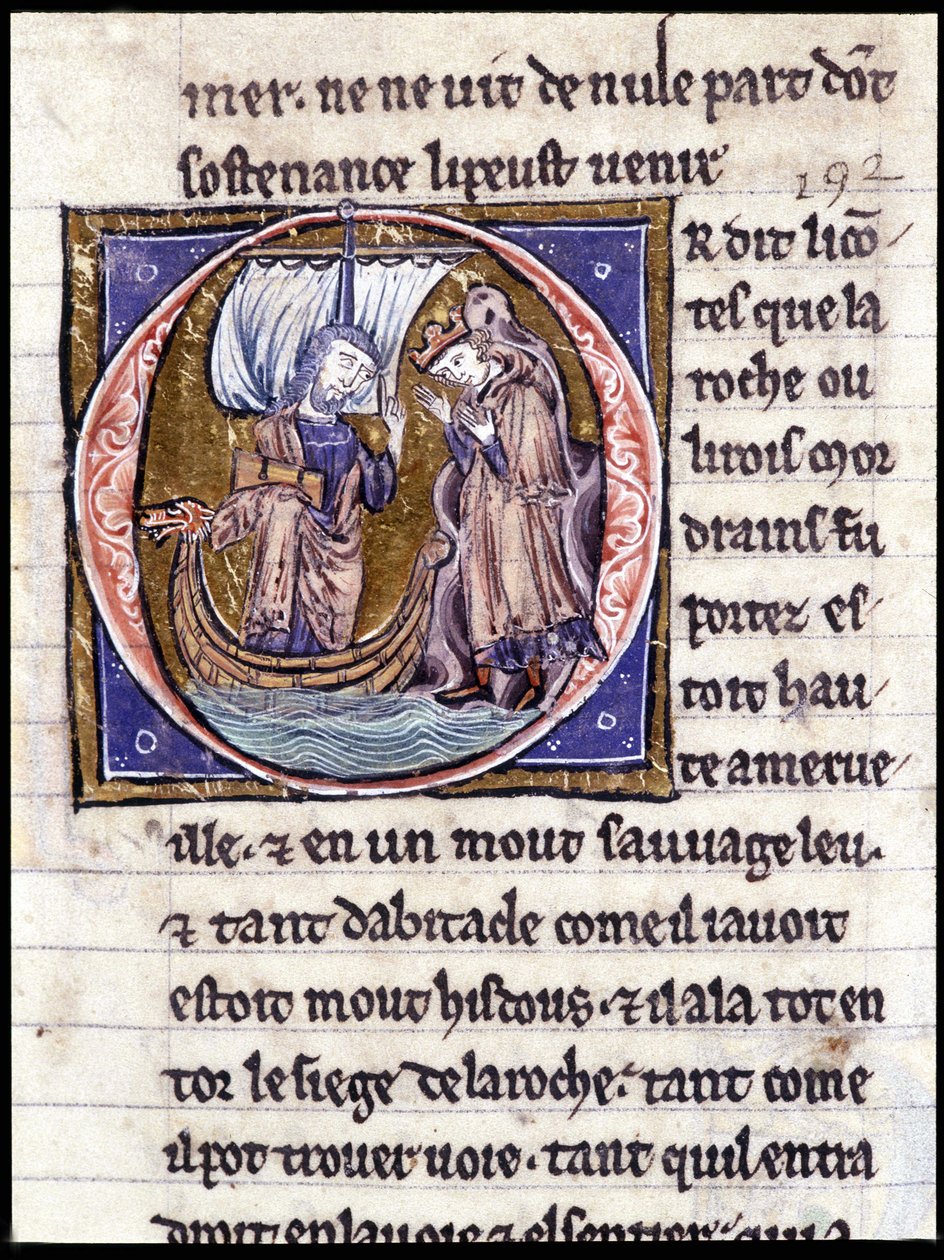 mer. ne ne uit de nule part dõt
sostenance li peust uenir
192
OR dit li cõ
tes que la
roche ou
li rois mor
drains fu
portez es
toit hau
te a merue
ille. ⁊ en un mout sauuage leu.
⁊ tant dabitacle come il i auoit
estoit mout hisdous. ⁊ il ala tot en
tor le siege de la roche. tant come
il pot trouer uoie. tant quil entra
droit en la uoie ⁊ el sentier qui